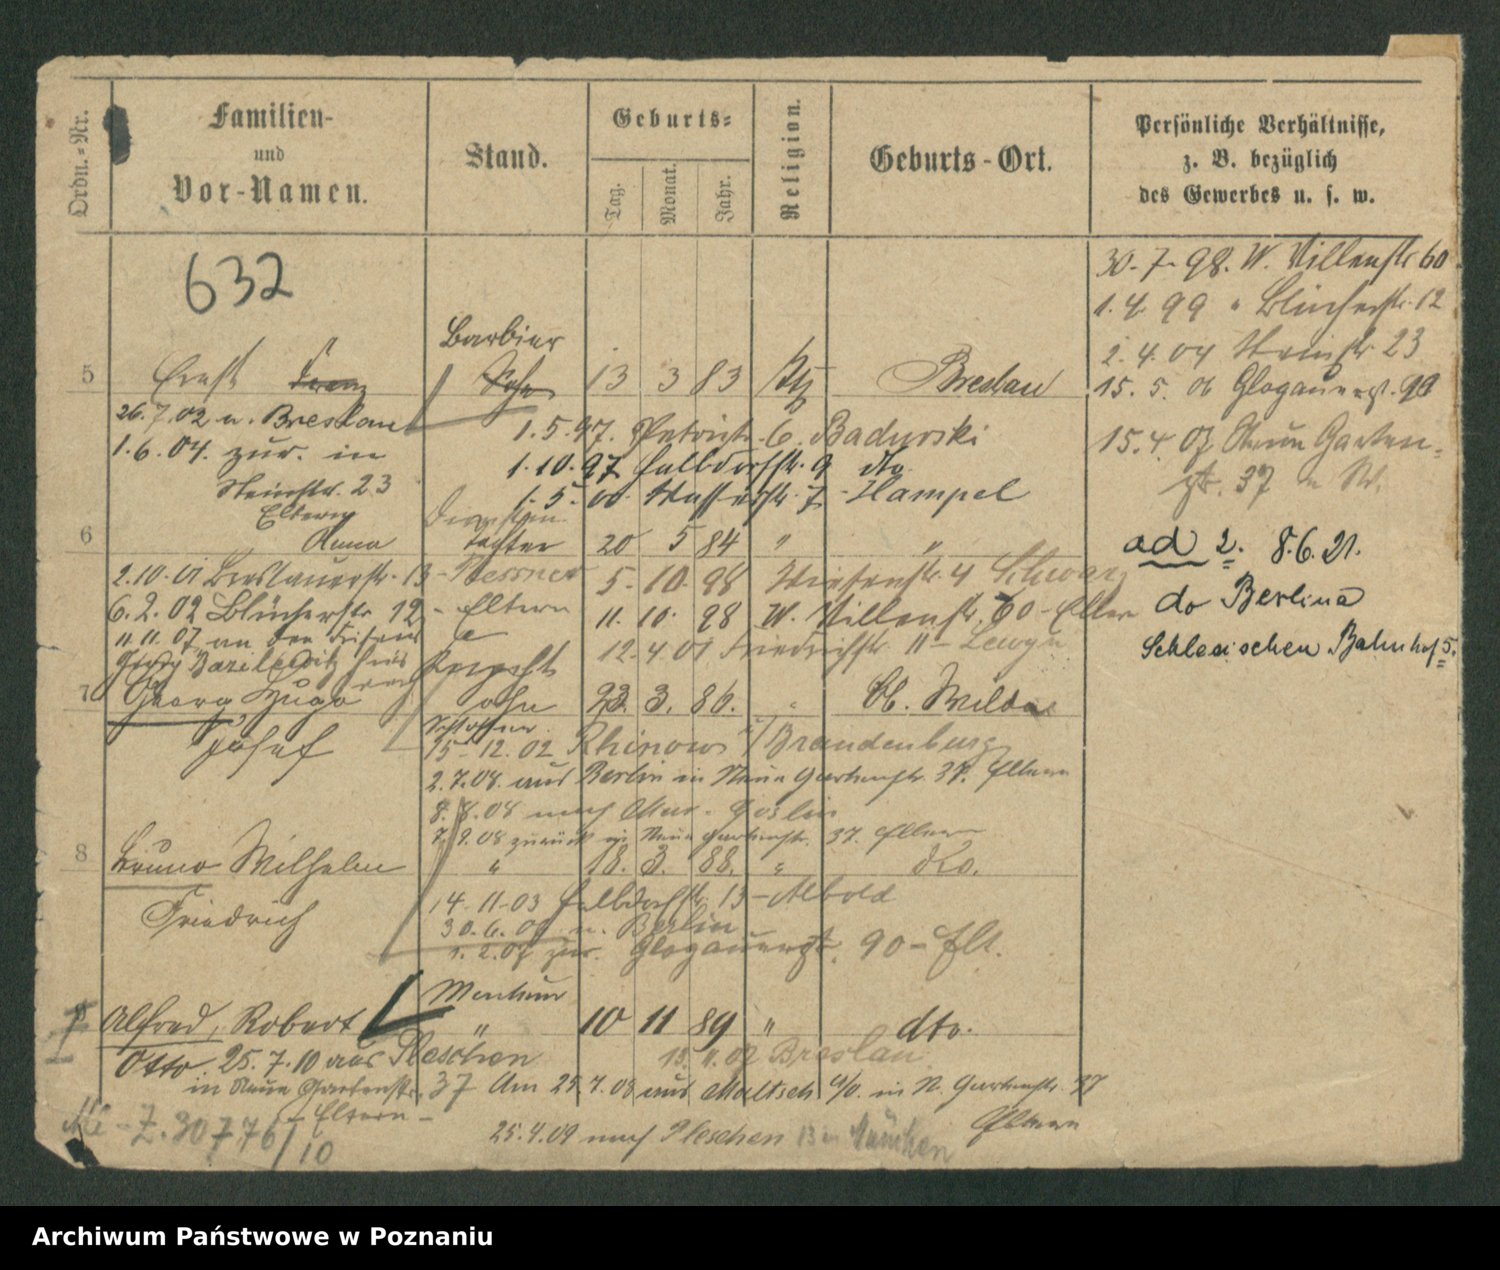 Ordn.-Nr.
Familien-
und
Vor-Namen.
Stand.
Geburts-
Tag.
Monat.
Jahr.
Religion.
Geburts-Ort.
Persönliche Verhältnisse,
z. B. bezüglich
des Gewerbes u. s. w.
632
30. 7. 98. W. Villenstr 60
1. 4. 99 " Blücherstr. 12
2. 4. 04 Steinstr 23
15. 5. 06 Glogauerstr. 90
15. 4. 07 Neue Garten-
str. 37
ad 2. 8.6.21.
do Berlin
Schlesischen Bahnhof 5.
Barbier
5 Ernst Franz Sohn 13 3 83 Breslau
26. 7. 02 n. Breslau
1. 5. 97. Patristr. 6. Badurski
1. 6. 04. zur. in
1. 10. 97 Halbdorfstr. 9 dto
Steinstr. 23
1. 5. 00 Wasserstr. 7 - Hampel
Eltern
6 Anna Tochter 20 5 84 " "
2. 10. 01 Breslauerstr. 13 - Messner
5. 10. 98 Wiesenstr. 4 Schwarz
6. 2. 02 Blücherstr. 12 - Eltern
11. 10. 98 W. Villenstr. 60 - Eltern
11. 11. 07 an den
12. 4. 01 Friedrichstr. 11 -
7 Georg Hugo Sohn 23. 3. 86. " Bb. Wilda
Josef
Schlosser
15. 12. 02 Rhinow i/Brandenburg
2. 7. 08. aus Berlin in Neue Gartenstr. 37. Eltern
8. 8. 08 nach Mur. Goslin
7. 9. 08 zurück in Neue Gartenstr. 37. Eltern
8 Bruno Wilhelm " 18. 3. 88. " dto.
Friedrich
14. 11. 03 Halbdorfstr. 13 - Albold
30. 6. 06 n. Berlin
1. 2. 07 zur. Glogauerstr. 90 - Elt.
9 Alfred, Robert " 10 11 89 " dto.
Otto. 25. 7. 10 aus Pleschen
Breslau
in Neue Gartenstr. 37
Am 25. 7. 08 aus Maltsch a/O. in N. Gartenstr. 37
- Eltern -
Eltern
25. 4. 09 nach Pleschen
Z. 30776/10
Archiwum Państwowe w Poznaniu